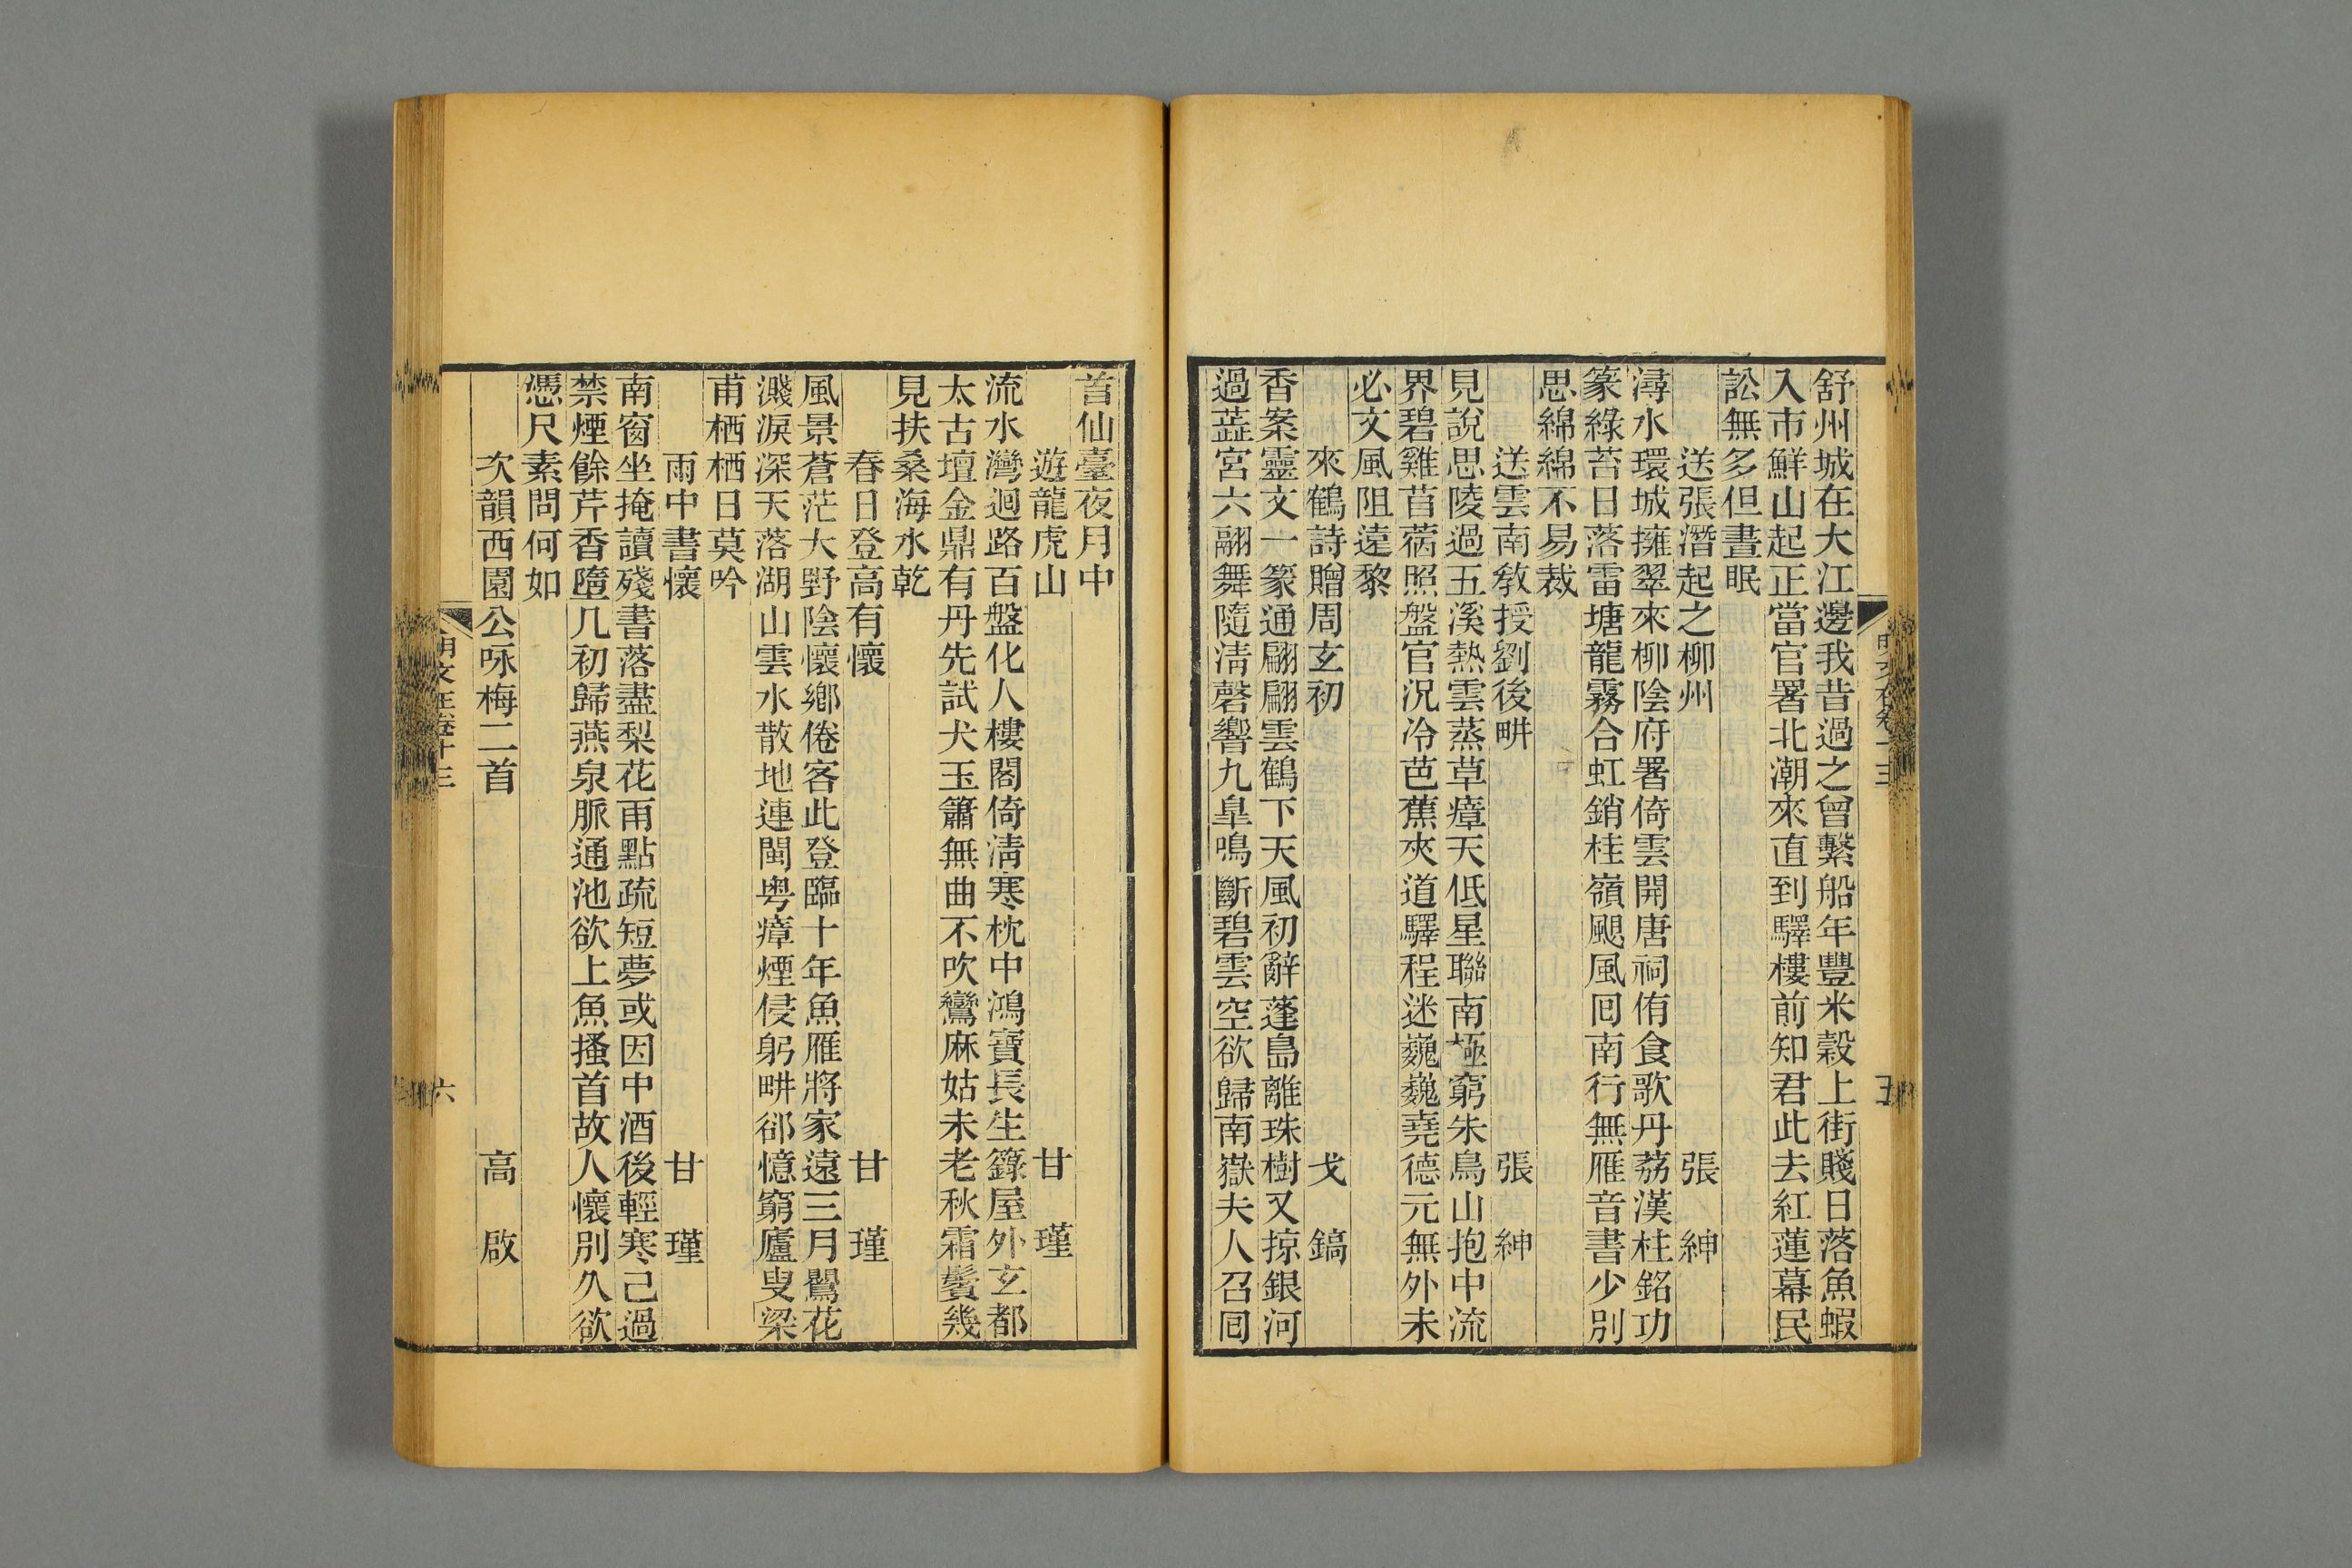 舒州城在大江邊我昔過之曾繫船年豐米穀上街賤日落魚蝦
入市鮮山起正當官署北潮來直到驛樓前知君此去紅蓮幕民
訟無多但晝眠
送張潛起之柳州 張紳
潯水環城擁翠來柳陰府署倚雲開唐祠侑食歌丹荔漢柱銘功
篆綠苔日落雷塘龍霧合虹銷桂嶺颶風囘南行無雁音書少別
思綿綿不易裁
送雲南敎授劉後畊 張紳
見說思陵過五溪熱雲蒸草瘴天低星聯南極窮朱鳥山抱中流
界碧雞苜蓿照盤官況冷芭蕉夾道驛程迷巍巍堯德元無外未
必文風阻遠黎
來鶴詩贈周玄初 戈鎬
香案靈文一篆通翩翩雲鶴下天風初辭蓬島離珠樹又掠銀河
過蕋宮六翮舞隨淸磬響九臯鳴斷碧雲空欲歸南嶽夫人召囘
五
首仙臺夜月中
遊龍虎山 甘瑾
流水灣迴路百盤化人樓閣倚淸寒枕中鴻寶長生籙屋外玄都
太古壇金鼎有丹先試犬玉簫無曲不吹鸞麻姑未老秋霜鬢幾
見扶桑海水乾
春日登高有懷 甘瑾
風景蒼茫大野陰懷鄉倦客此登臨十年魚雁將家遠三月鸎花
濺淚深天落湖山雲水散地連閩粤瘴煙侵躬畊郤憶窮廬叟梁
甫栖栖日莫吟
雨中書懷 甘瑾
南窗坐掩讀殘書落盡梨花雨點疏短夢或因中酒後輕寒已過
禁煙餘芹香墮几初歸燕泉脈通池欲上魚搔首故人懷別久欲
憑尺素問何如
次韻西園公咏梅二首 高啟
卷十三
六